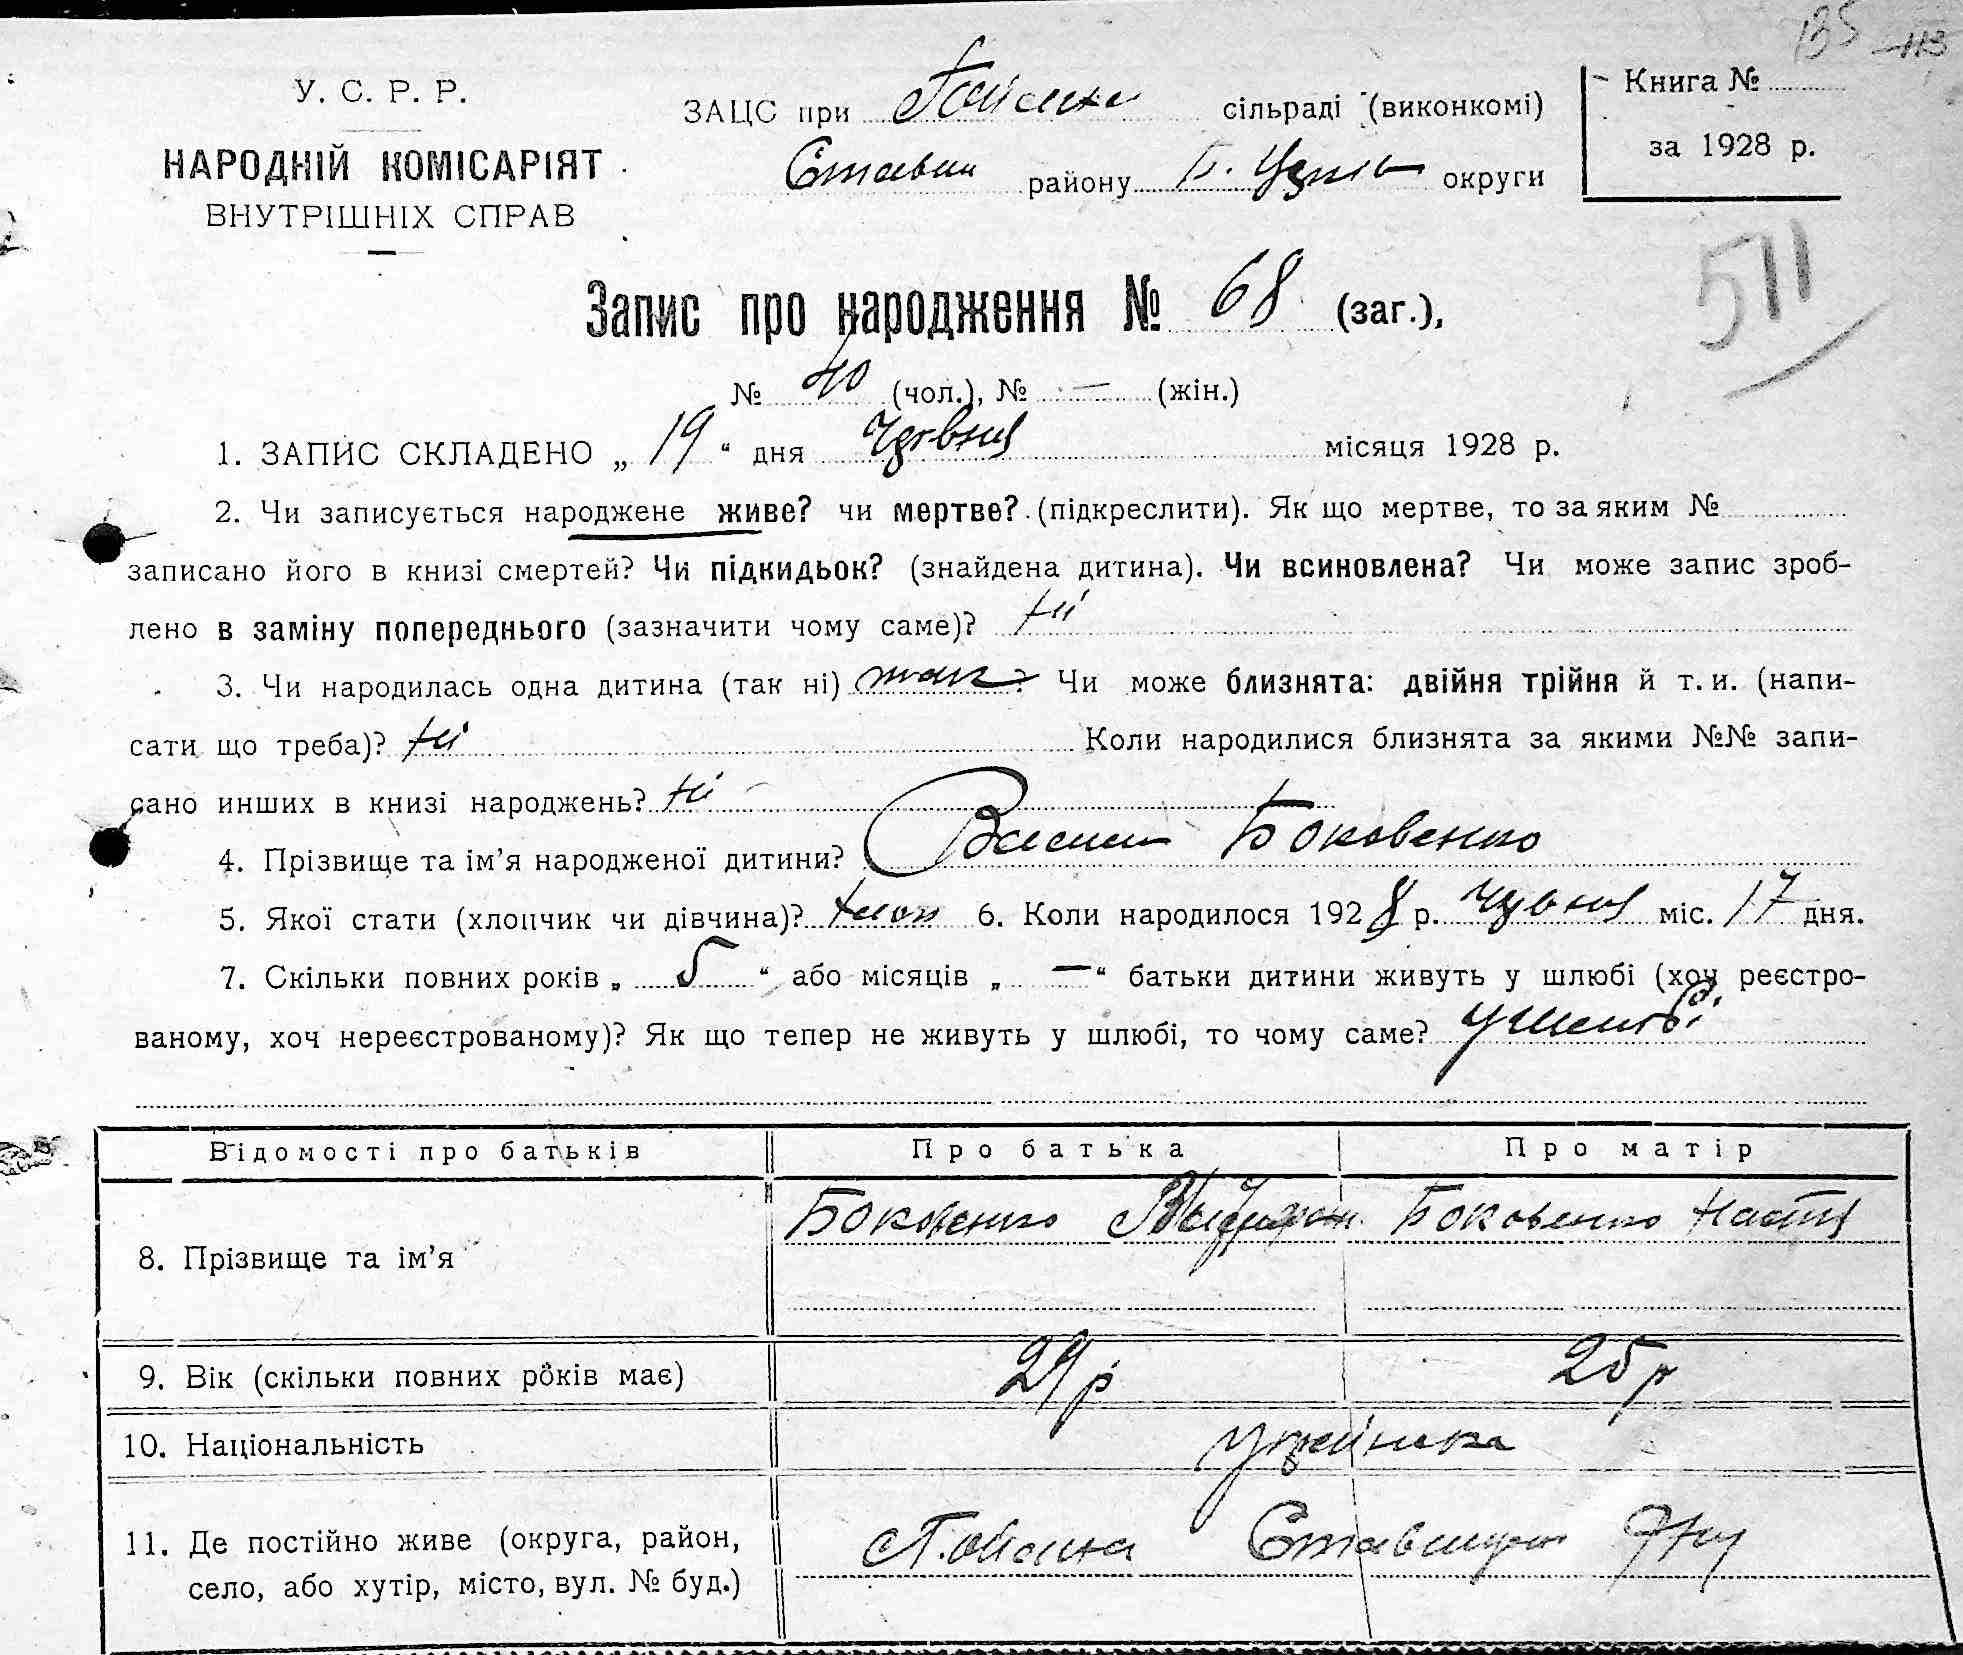 135 113
У. С. Р. Р.
НАРОДНІЙ КОМІСАРІЯТ
ВНУТРІШНІХ СПРАВ
ЗАЦС при сільраді (виконкомі)
району Б. Церків округи
Книга №
за 1928 р.
511
Запис про народження № 68 (заг.),
№ 40 (чол.), № — (жін.)
1. ЗАПИС СКЛАДЕНО „ 19 “ дня червня місяця 1928 р.
2. Чи записується народжене живе? чи мертве? (підкреслити). Як що мертве, то за яким №
записано його в книзі смертей? Чи підкидьок? (знайдена дитина). Чи всиновлена? Чи може запис зроб-
лено в заміну попереднього (зазначити чому саме)? ні
3. Чи народилась одна дитина (так ні) так ? Чи може близнята: двійня трійня й т. и. (напи-
сати що треба)? ні Коли народилися близнята за якими №№ запи-
сано инших в книзі народжень? ні
4. Прізвище та ім’я народженої дитини? Василь Боковенко
5. Якої стати (хлопчик чи дівчина)? хлоп 6. Коли народилося 1928 р. червня міс. 17 дня.
7. Скільки повних років „ 5 “ або місяців „ — “ батьки дитини живуть у шлюбі (хоч реєстро-
ваному, хоч нереєстрованому)? Як що тепер не живуть у шлюбі, то чому саме? у шлюбі
Відомості про батьків Про батька Про матір
8. Прізвище та ім’я Боковенко Боковенко Настя
9. Вік (скільки повних років має) 29 р 25 р
10. Національність
11. Де постійно живе (округа, район,
село, або хутір, місто, вул. № буд.)